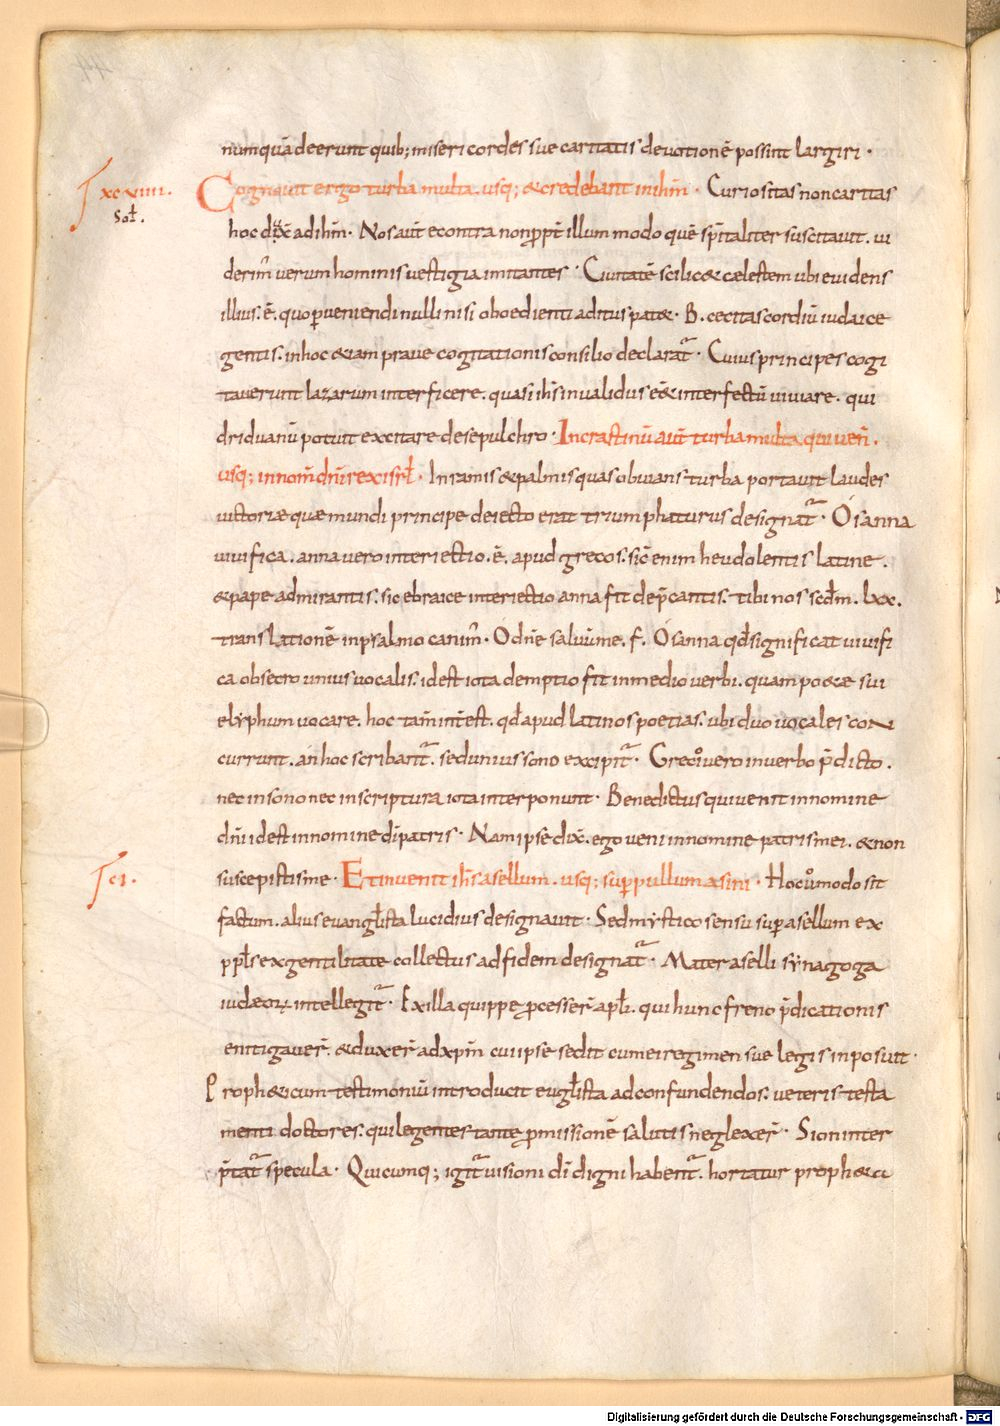 numquā deerunt quib; misericordes sue caritatis devotionē possint largiri ·
xcviiii.
Sol̄.
Cognovit ergo turba multa . usq; & credebant in ihm̄ · Curiositas non caritas
hoc ad ihm̄ · Nos aut̄ econtra non ꝓpt̄ illum modo quē sp̄italiter suscitavit . vi
derim̄ verum hominis vestigia imitantes · Civitatē scilic& cælestem ubi evidens
illius . ē . quo ꝑveniendi nulli nisi oboedienti aditus pat& · B . cecitas cordiū iudaice
gentis . in hoc &iam prave cogitationis consilio declarat᷑ · Cuius principes cogi
taverunt lazarum interficere . quasi ihs̄ invalidus ēet interfectū vivare . qui
driduanū potuit excitare de sepulchro · In crastinū aut̄ turba multa qui ven̄ .
usq; in nom̄ dn̄i rex isrl̄ · In ramis & palmis quas obvians turba portavit laudes
victoriæ quæ mundi principe deiecto erat triumphaturus designat᷑ · Osanna
vivifica . anna vero interiectio . ē . apud grecos . sic̄ enim heu dolentis latine .
& pape admirantis . sic ebraice interiectio anna fit dep̄cantis . tibi nos scd̄m . lxx .
translationē in psalmo canim̄ · O dn̄e salvū me . f . Osanna qd̄ significat vivifi
ca obsecro unius vocalis . id est iota demptio fit in medio verbi . quam po&æ sui
elyphum vocare . hoc tam̄ int̄est . qd̄ apud latinos poetas . ubi duo vocales con
currunt . an hoc scribant᷑ . sed unius sono excipit᷑ · Greci vero in verbo p̄dicto .
nec in sono nec in scriptura iota interponunt · Benedictus qui venit in nomine
dn̄i id est in nomine dī patris · Nam ipse dix̄ . ego veni in nomine patris mei . & non
suscepistis me · Et invenit ihs̄ asellum . usq; suꝑ pullum asini · Hoc quomodo sit
ci.
factum . alius evangl̄ista lucidius designavit · Sed mystico sensu suꝑ asellum ex
ppl̄s ex gentilitate collectus ad fidem designat᷑ · Mater aselli synagoga
iudæoꝝ intellegit᷑ · Ex illa quippe ꝓcesser̄ apl̄i . qui hunc freno p̄dicationis
enitigaver̄ . & duxer̄ ad xp̄m cui ipse sedit cum ei regimen sue legis inposuit ·
Proph&icum testimoniū introducit eugl̄ista ad confundendos . veteris testa
menti doctores . qui legentes tantę ꝓmissionē salutis neglexer̄ · Sion inter
p̄tat᷑ specula · Quicunq; igit᷑ visioni dī digni habent᷑ . hortatur proph&a
Digitalisierung gefördert durch die Deutsche Forschungsgemeinschaft - DFG